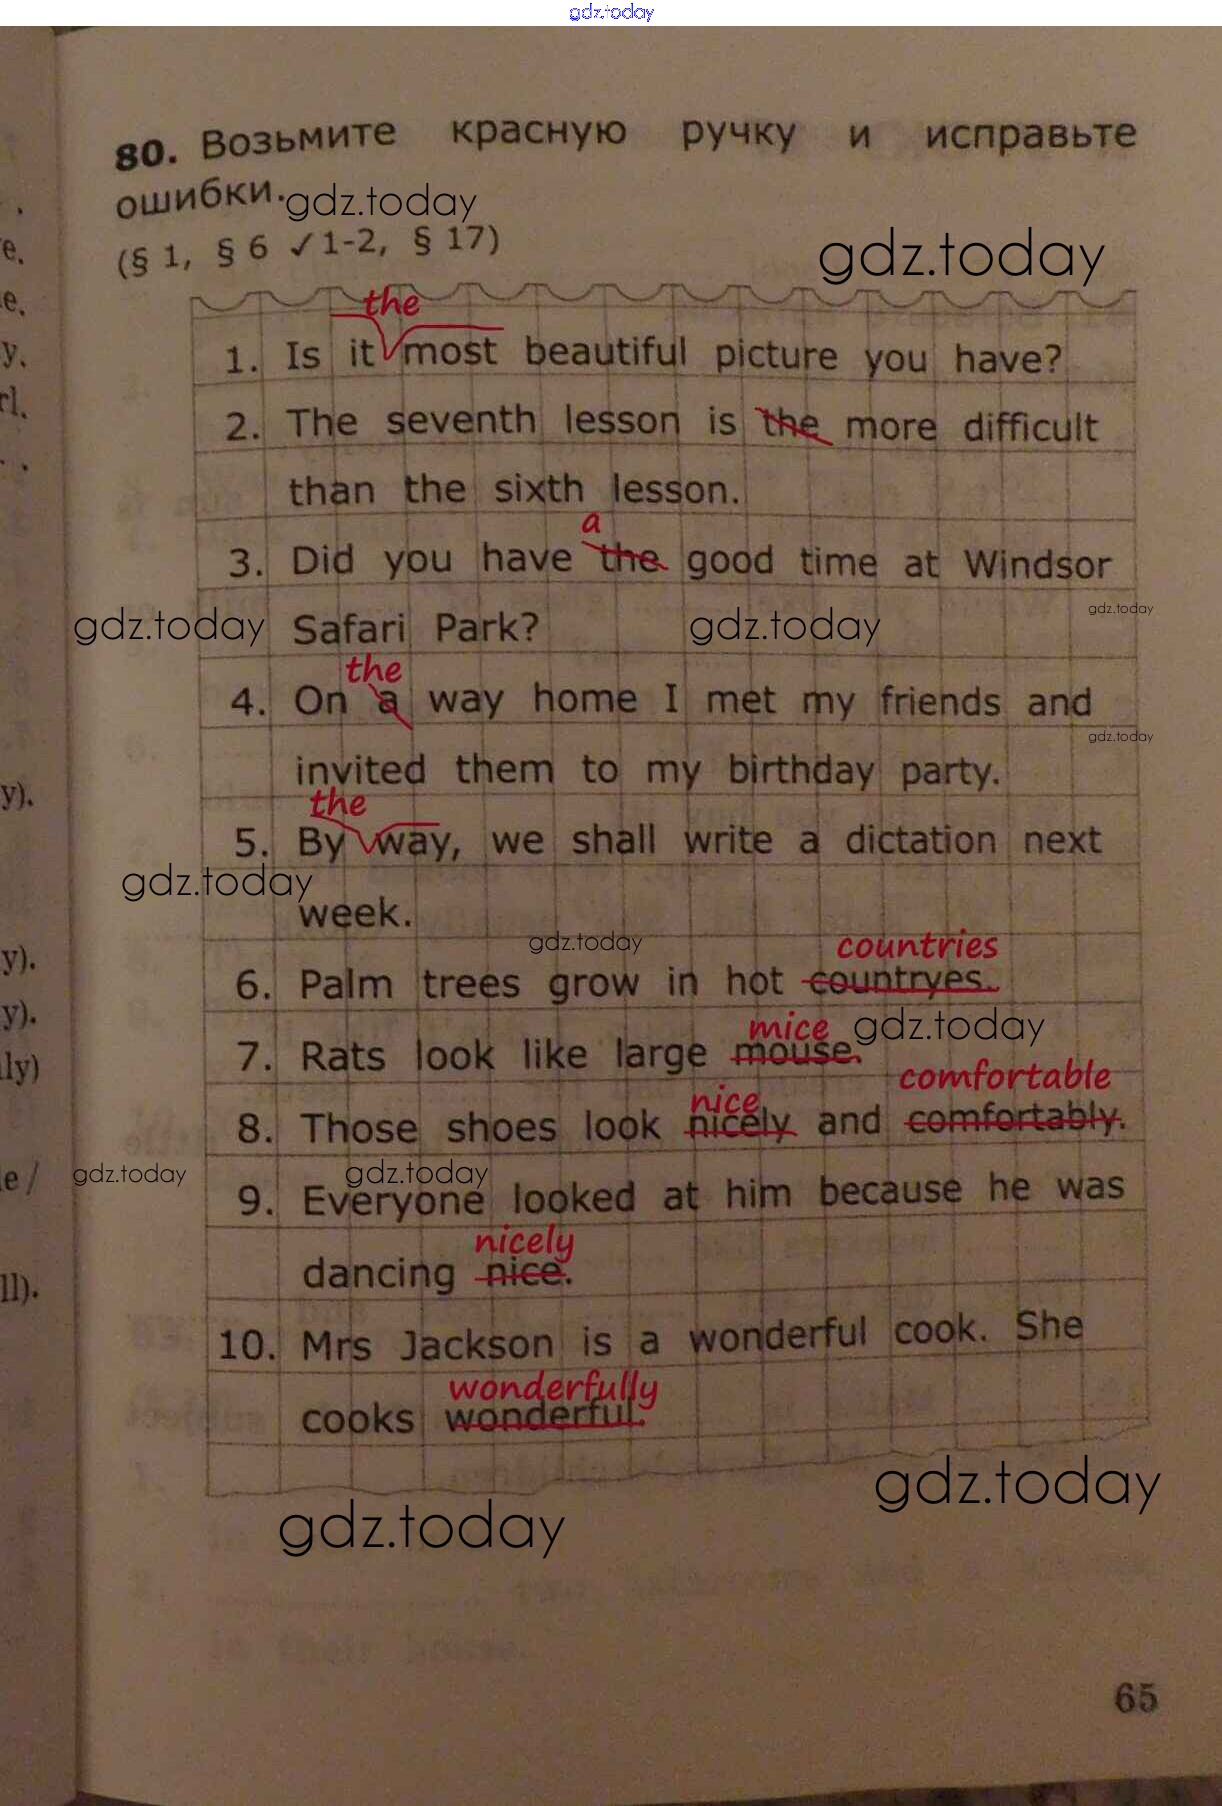 gdz.today
80. Возьмите красную ручку и исправьте
ошибки. gdz.today
(§ 1, § 6 ✓1-2, § 17)
gdz.today
the
1. Is it most beautiful picture you have?
2. The seventh lesson is the more difficult
than the sixth lesson.
a
3. Did you have the good time at Windsor
gdz.today Safari Park? gdz.today gdz.today
the
4. On a way home I met my friends and
gdz.today
invited them to my birthday party.
the
5. By way, we shall write a dictation next
gdz.today
week.
gdz.today countries
6. Palm trees grow in hot countryes.
mice gdz.today
7. Rats look like large mouse.
nice comfortable
8. Those shoes look nicely and comfortably.
gdz.today gdz.today
9. Everyone looked at him because he was
nicely
dancing nice.
10. Mrs Jackson is a wonderful cook. She
wonderfully
cooks wonderful.
gdz.today
gdz.today
65
e.
e.
y.
rl.
y).
y).
y).
lly)
e /
ll).